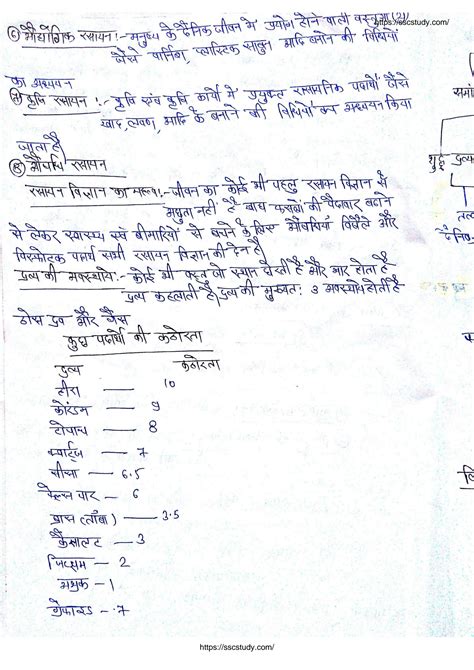 https://sscstudy.com/
(2)
⑥ औद्योगिक रसायन :- मनुष्य के दैनिक जीवन में प्रयोग होने वाली वस्तुओं
जैसे वार्निश, प्लास्टिक साबुन आदि बनाने की विधियों
का अध्ययन
⑦ कृषि रसायन :- कृषि एवं कृषि कार्यो में प्रयुक्त रासायनिक पदार्थो जैसे
खाद, लवण, आदि के बनाने की विधियों का अध्ययन किया
जाता है
⑧ औषधि रसायन
रसायन विज्ञान का महत्व :- जीवन का कोई भी पहलु रसायन विज्ञान से
अछुता नहीं है खाद्य फसलों की पैदावार बढाने
से लेकर स्वास्थ्य एवं बीमारियों से बचने के लिए औषधियां विषैले और
विस्फोटक पदार्थ सभी रसायन विज्ञान की देन है
द्रव्य की अवस्थाये :- कोई भी वस्तु जो स्थान घेरती है और भार होता है
द्रव्य कहलाती है द्रव्य की मुख्यतः 3 अवस्थाये होती है
ठोस द्रव और गैस
कुछ पदार्थो की कठोरता
द्रव्य कठोरता
हीरा — 10
कोरंडम — 9
टोपाज — 8
क्वार्ट्ज — 7
शीशा — 6.5
फेल्सपार — 6
ब्रास (तांबा) — 3.5
कैल्साइट — 3
जिप्सम — 2
अभ्रक — 1
ग्रेफाइट - .7
शुद्ध द्रव्य
https://sscstudy.com/